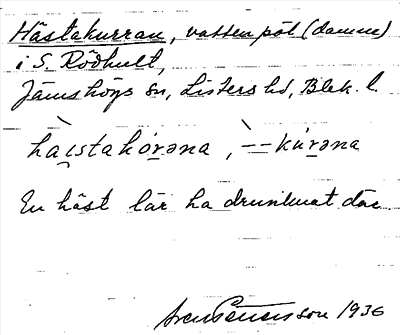 Hästakurran, vattenpöl (damm)
i S. Rödhult,
Jämshögs sn, Listers hd, Blek. l.
hài̯stakớrəna, `--kúrəna
En häst lär ha drunknat där.
Sven Benson 1936